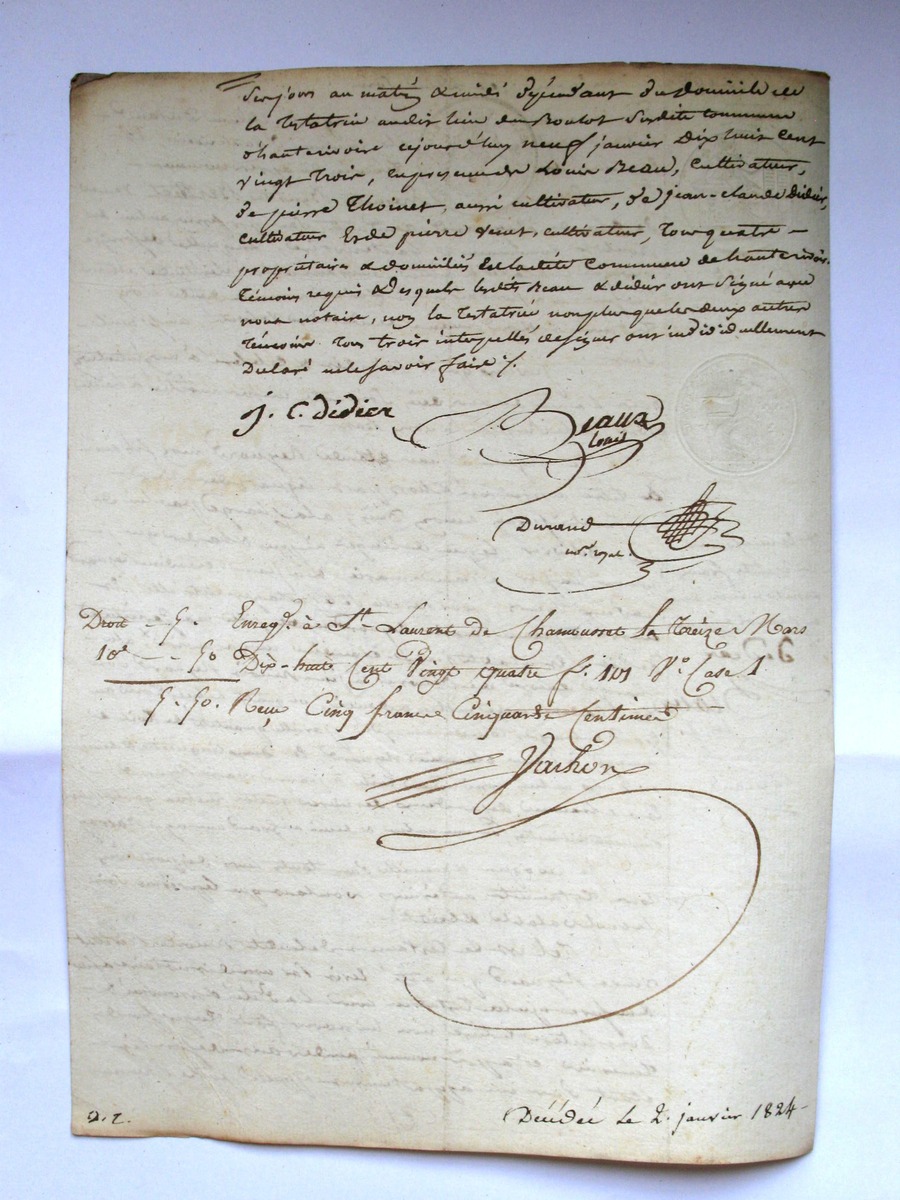 la testatrice audit lieu du Boulot susdite commune
d'hauterivoire cejourd'huy neuf janvier Dix huit cent
vingt trois, en présence de Louis Beau, cultivateur,
de pierre Thoinet, aussi cultivateur, de jean-claude Didier,
cultivateur Et de pierre venet, cultivateur, Tous quatre -
propriétaires & domiciliés de ladite commune de hauterivoire.
Témoins requis & desquels lesdits Beau & didier ont signé avec
nous notaire, non la testatrice non plus que les deux autres
témoins Tous trois interpellés de signer ont individuellement
Declaré ne le savoir faire /.
J. C. Didier
Beaux
Louis
Durand
Droit - 5. Enregé. à St Laurent de Chamousset le Treize Mars
10e - 50 Dix-huit Cent Vingt quatre f°. 101 V° Case 1
5. 50. Reçu Cinq francs Cinquante Centimes
Vachon
D. T.
Décédée Le 2. janvier 1824